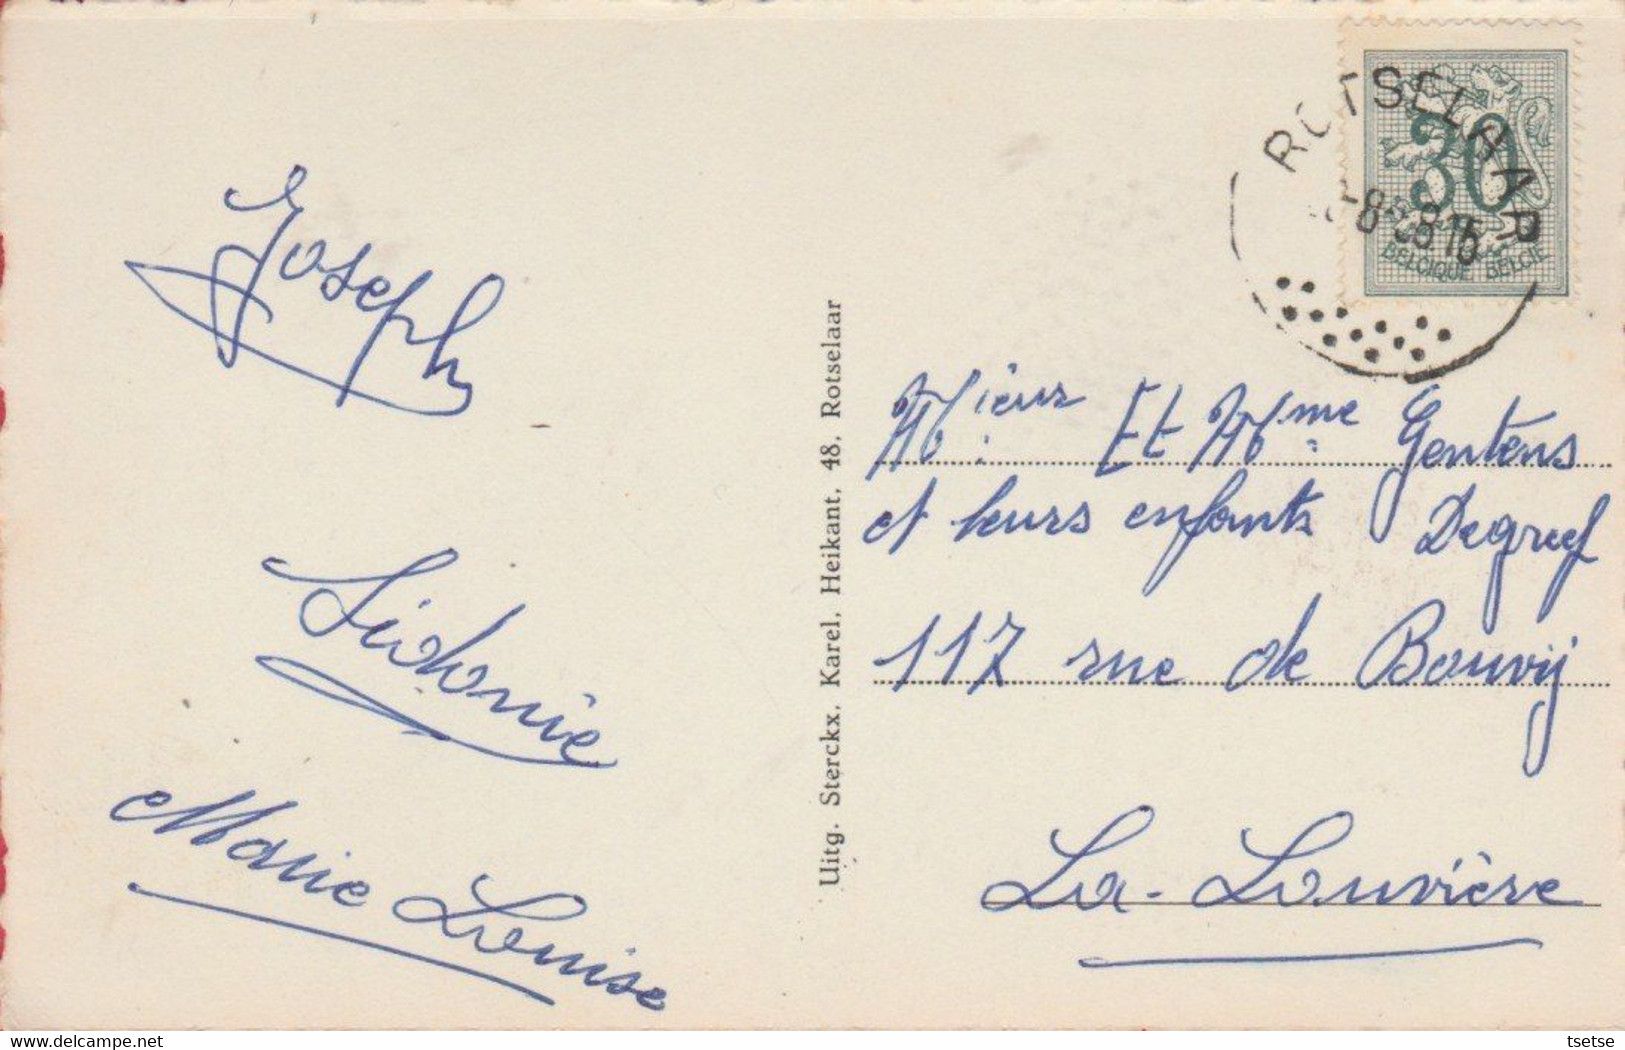 Joseph
Sidonie
Marie Louise
Uitg. Sterckx, Karel, Heikant, 48, Rotselaar
ROTSELAAR
30
BELGIQUE BELGIE
Mieur Et Mme Gentens
et leurs enfants Degreef
117 rue de Bouvy
La-Louvière
delcampe.net
tsetse